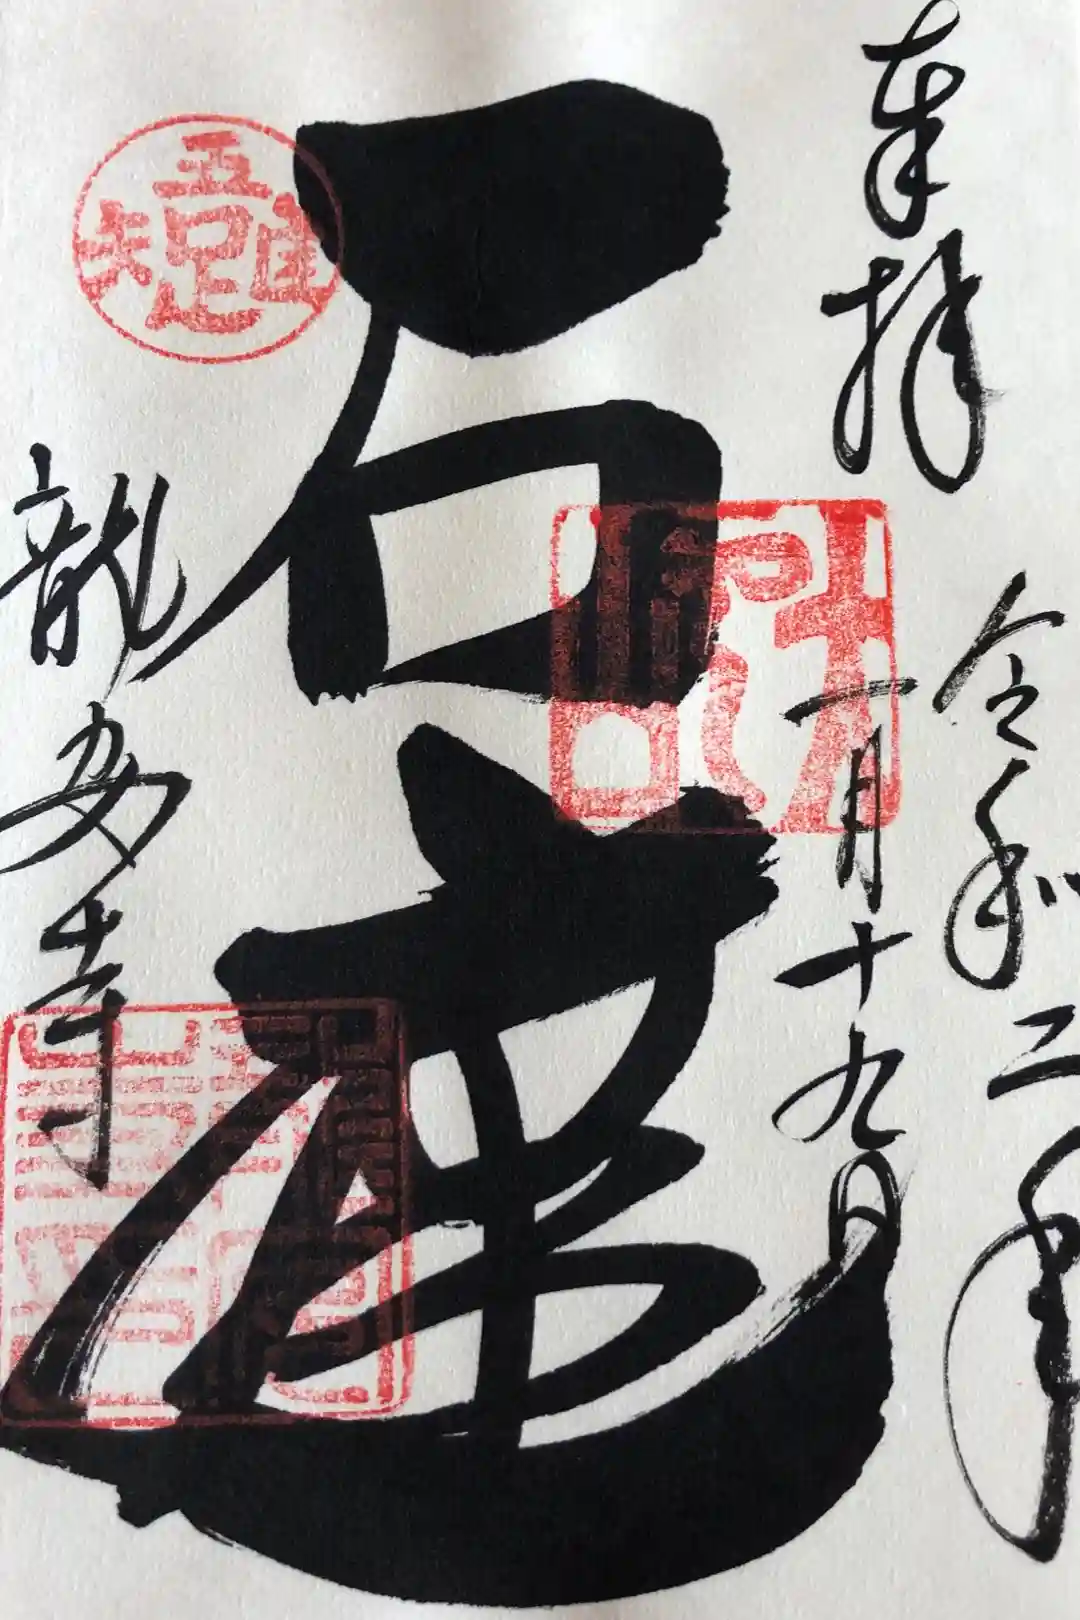 奉拝
令和二年
一月十九日
石庭
龍安寺
吾唯足知